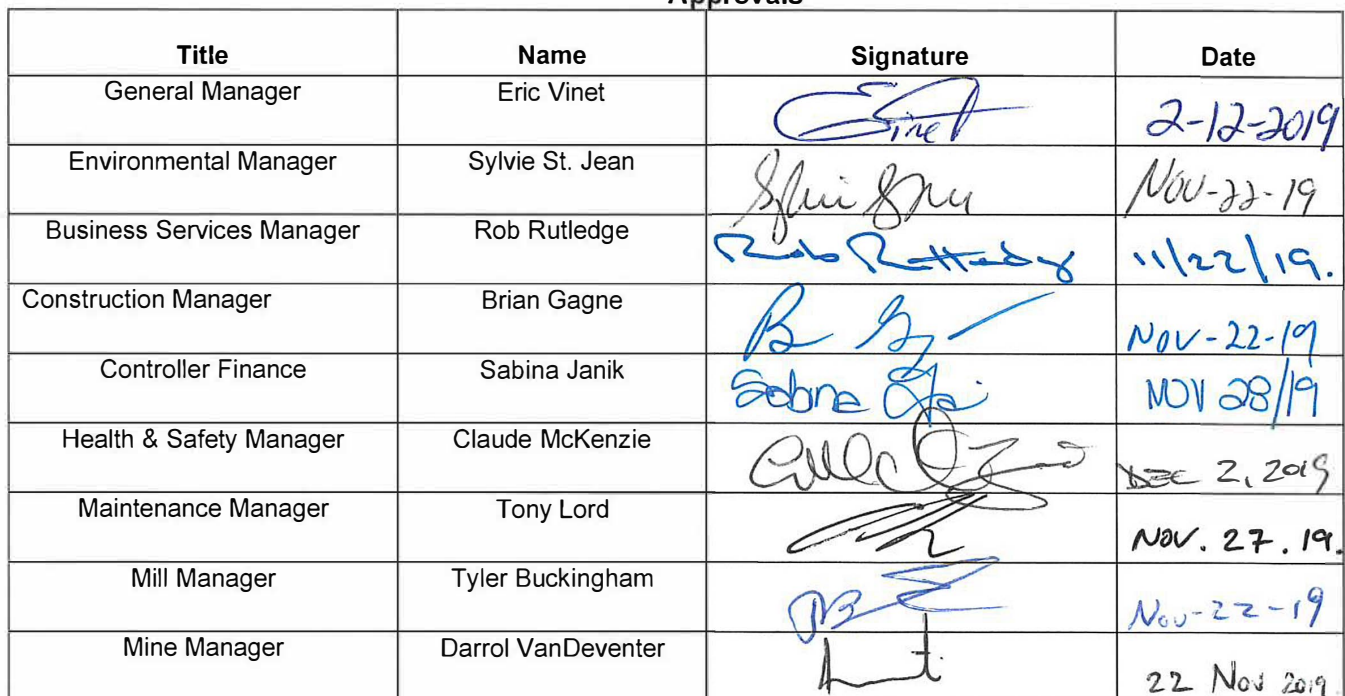 Approvals
Title Name Signature Date
General Manager Eric Vinet EVinet 2-12-2019
Environmental Manager Sylvie St. Jean Nov-22-19
Business Services Manager Rob Rutledge Rob Rutledge 11/22/19.
Construction Manager Brian Gagne Nov-22-19
Controller Finance Sabina Janik Sabina NOV 28/19
Health & Safety Manager Claude McKenzie DEC 2, 2019
Maintenance Manager Tony Lord Nov. 27. 19.
Mill Manager Tyler Buckingham Nov-22-19
Mine Manager Darrol VanDeventer 22 Nov 2019